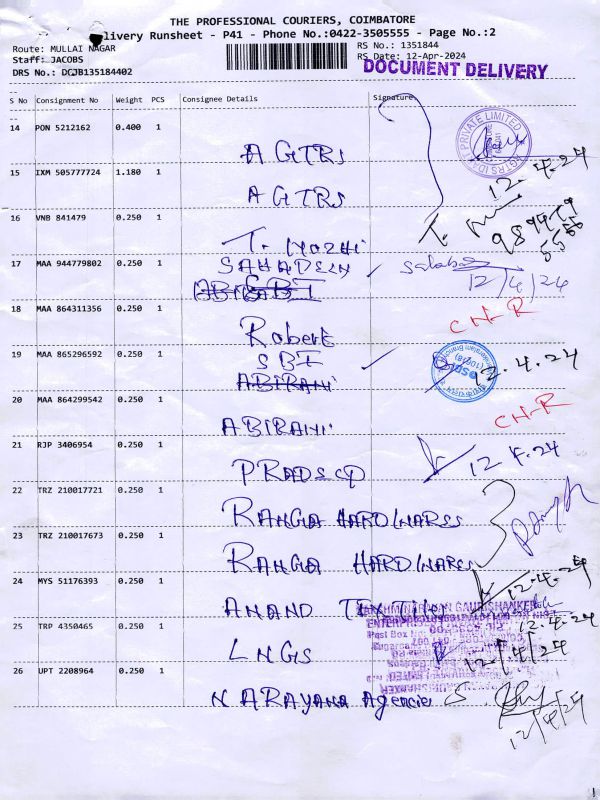 THE PROFESSIONAL COURIERS, COIMBATORE
elivery Runsheet - P41 - Phone No.:0422-3505555 - Page No.:2
Route: MULLAI NAGAR
RS No.: 1351844
Staff: JACOBS
RS Date: 12-Apr-2024
DRS No.: DCJB135184402
DOCUMENT DELIVERY
S No Consignment No Weight PCS Consignee Details Signature
14 PON 5212162 0.400 1
A GTRS
12.4.24
15 IXM 505777724 1.180 1
A GTRS
16 VNB 841479 0.250 1
T. Mozhi
17 MAA 944779802 0.250 1
SAHADEEN
12/4/24
SBI
18 MAA 864311356 0.250 1
CN-R
Robert
19 MAA 865296592 0.250 1
SBI
12.4.24
ABIRANI
20 MAA 864299542 0.250 1
CN-R
ABIRAMI
21 RJP 3406954 0.250 1
12 4.24
PRADEEP
22 TRZ 210017721 0.250 1
RANGA HARDWARES
23 TRZ 210017673 0.250 1
RANGA HARDWARES
24 MYS 51176393 0.250 1
12.4.24
ANAND
25 TRP 4350465 0.250 1
12.4.24
LNGS
12/4/24
26 UPT 2208964 0.250 1
NARAYANA Agencies
12/4/24